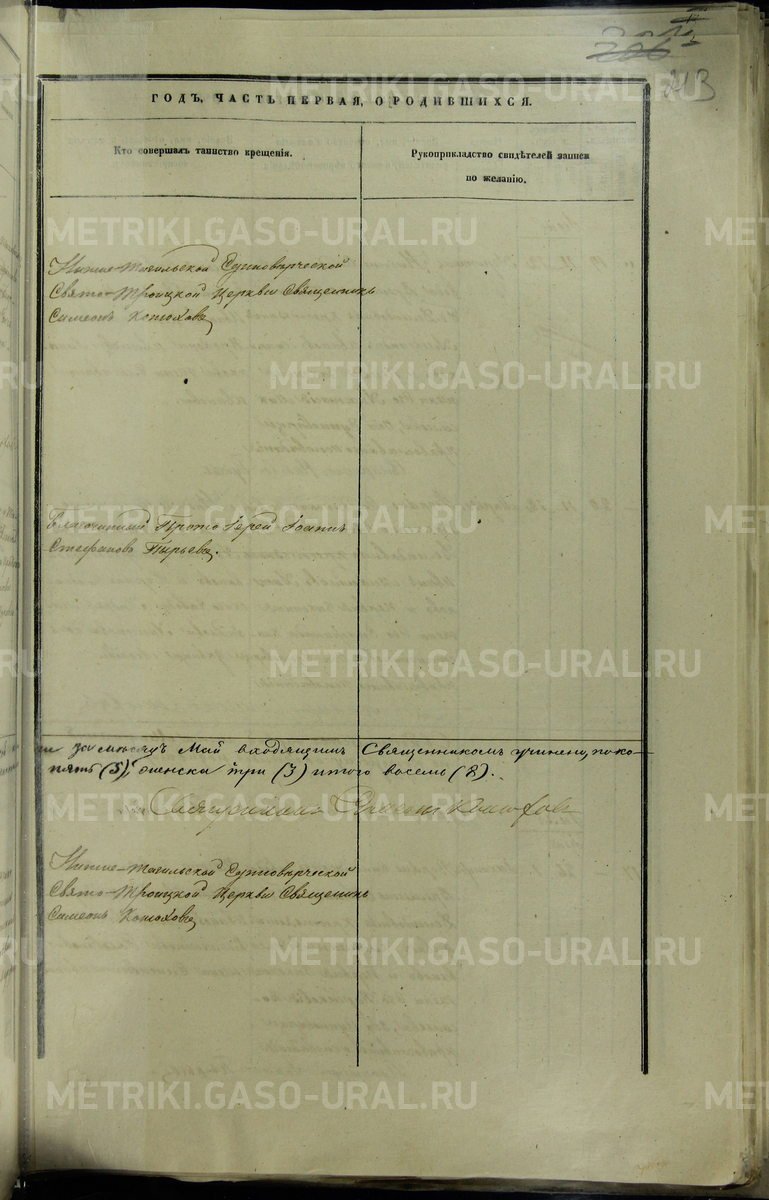 206
213
ГОДЪ, ЧАСТЬ ПЕРВАЯ, О РОДИВШИХСЯ.
Кто совершалъ таинство крещенія.
Рукоприкладство свидѣтелей записи
по желанію.
Нижне-Тагильской Единовѣрческой
Свято-Троицкой Церкви Священникъ
Симеонъ Конюховъ
Благочинный Прото Іерей Іоаннъ
Стефановъ Пырьевъ.
за мѣсяцъ Май входящимъ Священникомъ учинено, по ко-
пять (5), женска три (3) итого восемь (8).
Священникъ Симеонъ Конюховъ
Нижне-Тагильской Единовѣрческой
Свято-Троицкой Церкви Священникъ
Симеонъ Конюховъ
METRIKI.GASO-URAL.RU